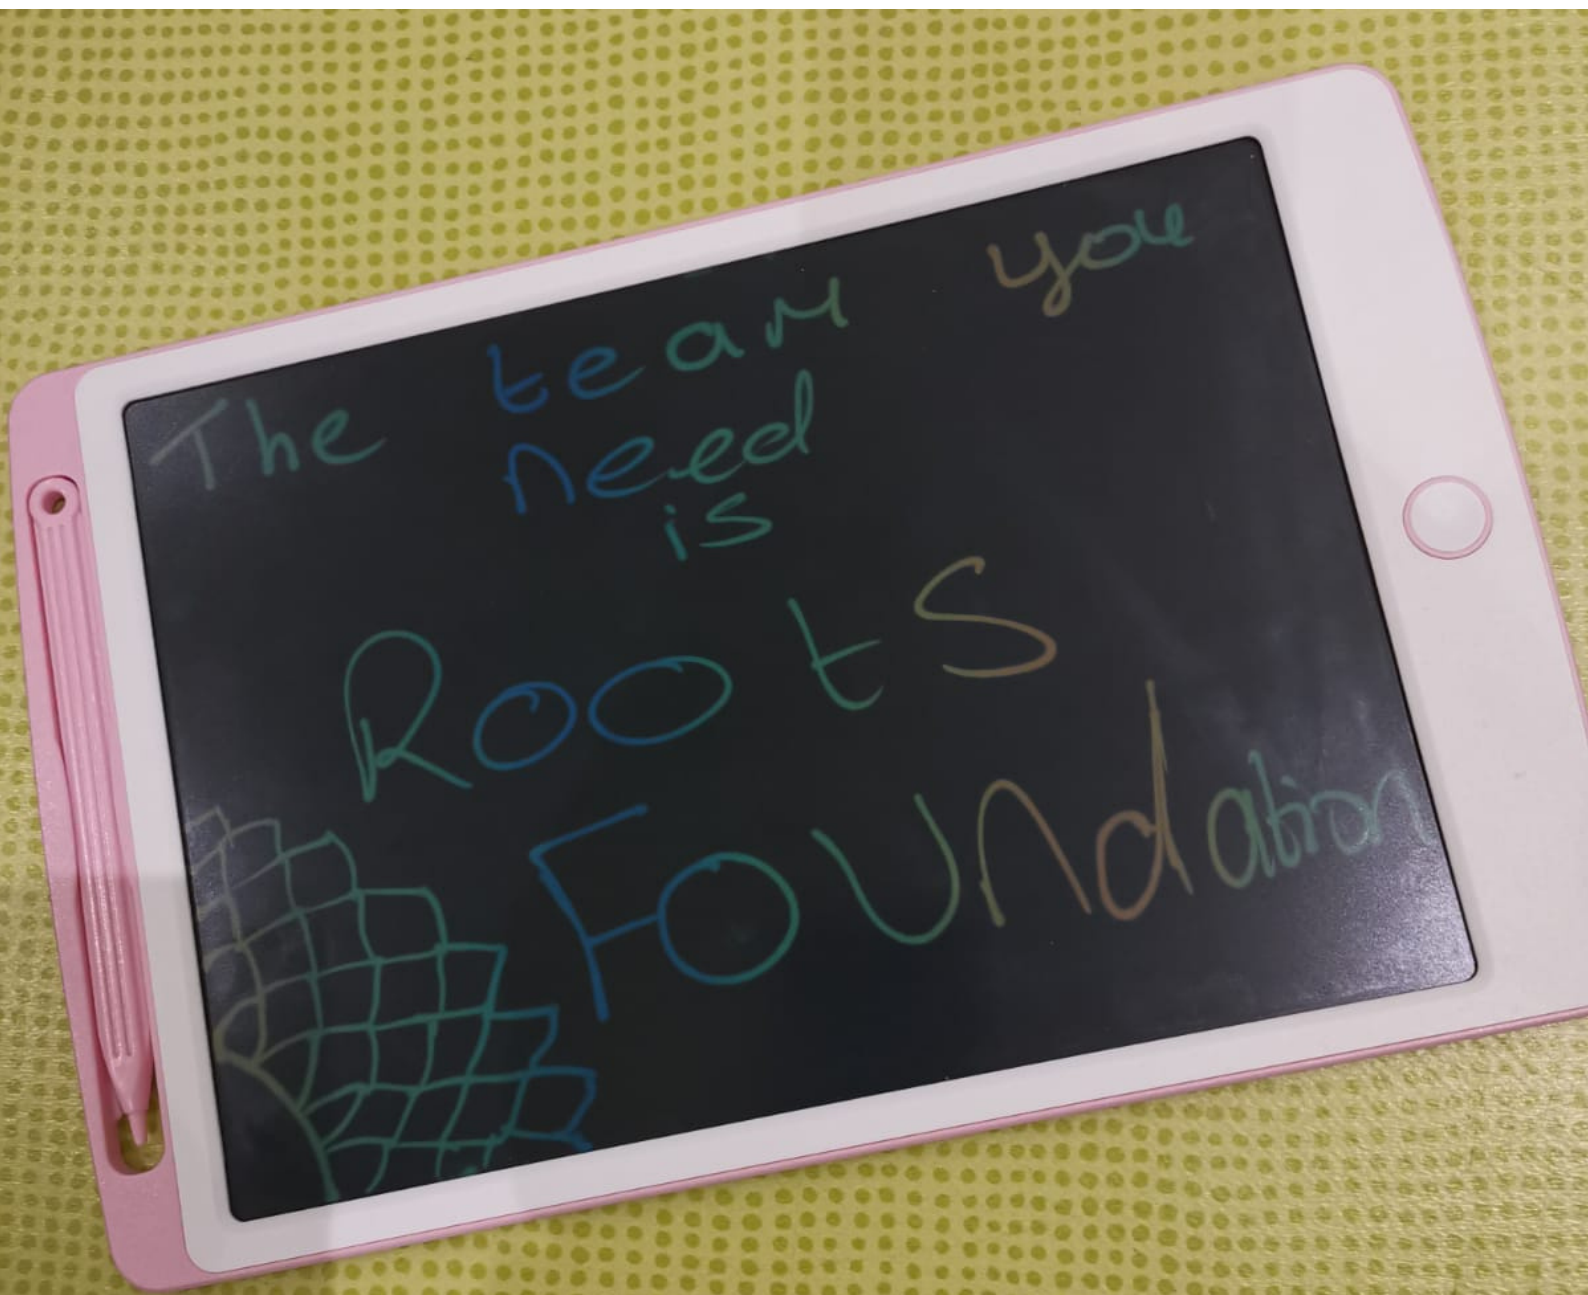 The team you
need
is
Roots
Foundation